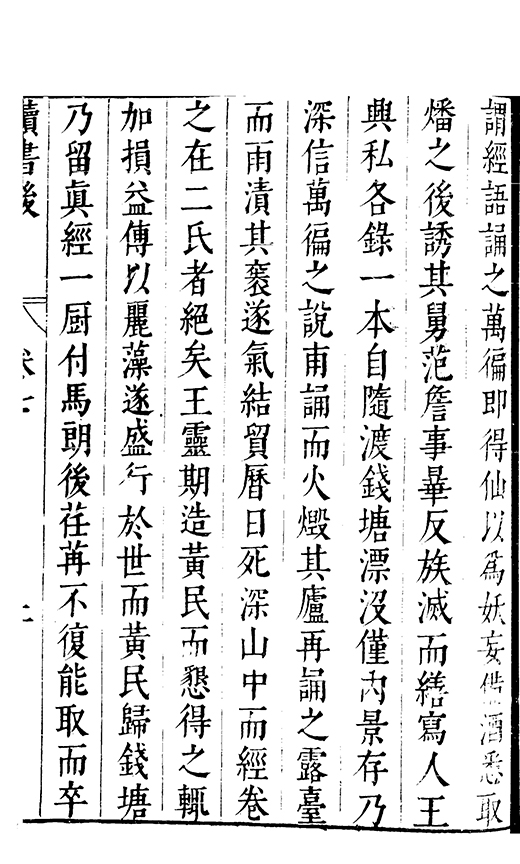 謂經語誦之萬徧即得仙以為妖妄借酒悉取
燔之後誘其舅范詹事曅反族滅而繕寫人王
興私各錄一本自隨渡錢塘漂没僅內景存乃
深信萬徧之說甫誦而火燬其廬再誦之露臺
而雨漬其袠遂氣結貿曆日死深山中而經卷
之在二氏者絕矣王靈期造黃民而懇得之輒
加損益傳以麗藻遂盛行於世而黃民歸錢塘
乃留眞經一厨付馬朗後荏苒不復能取而卒
讀書後
卷七